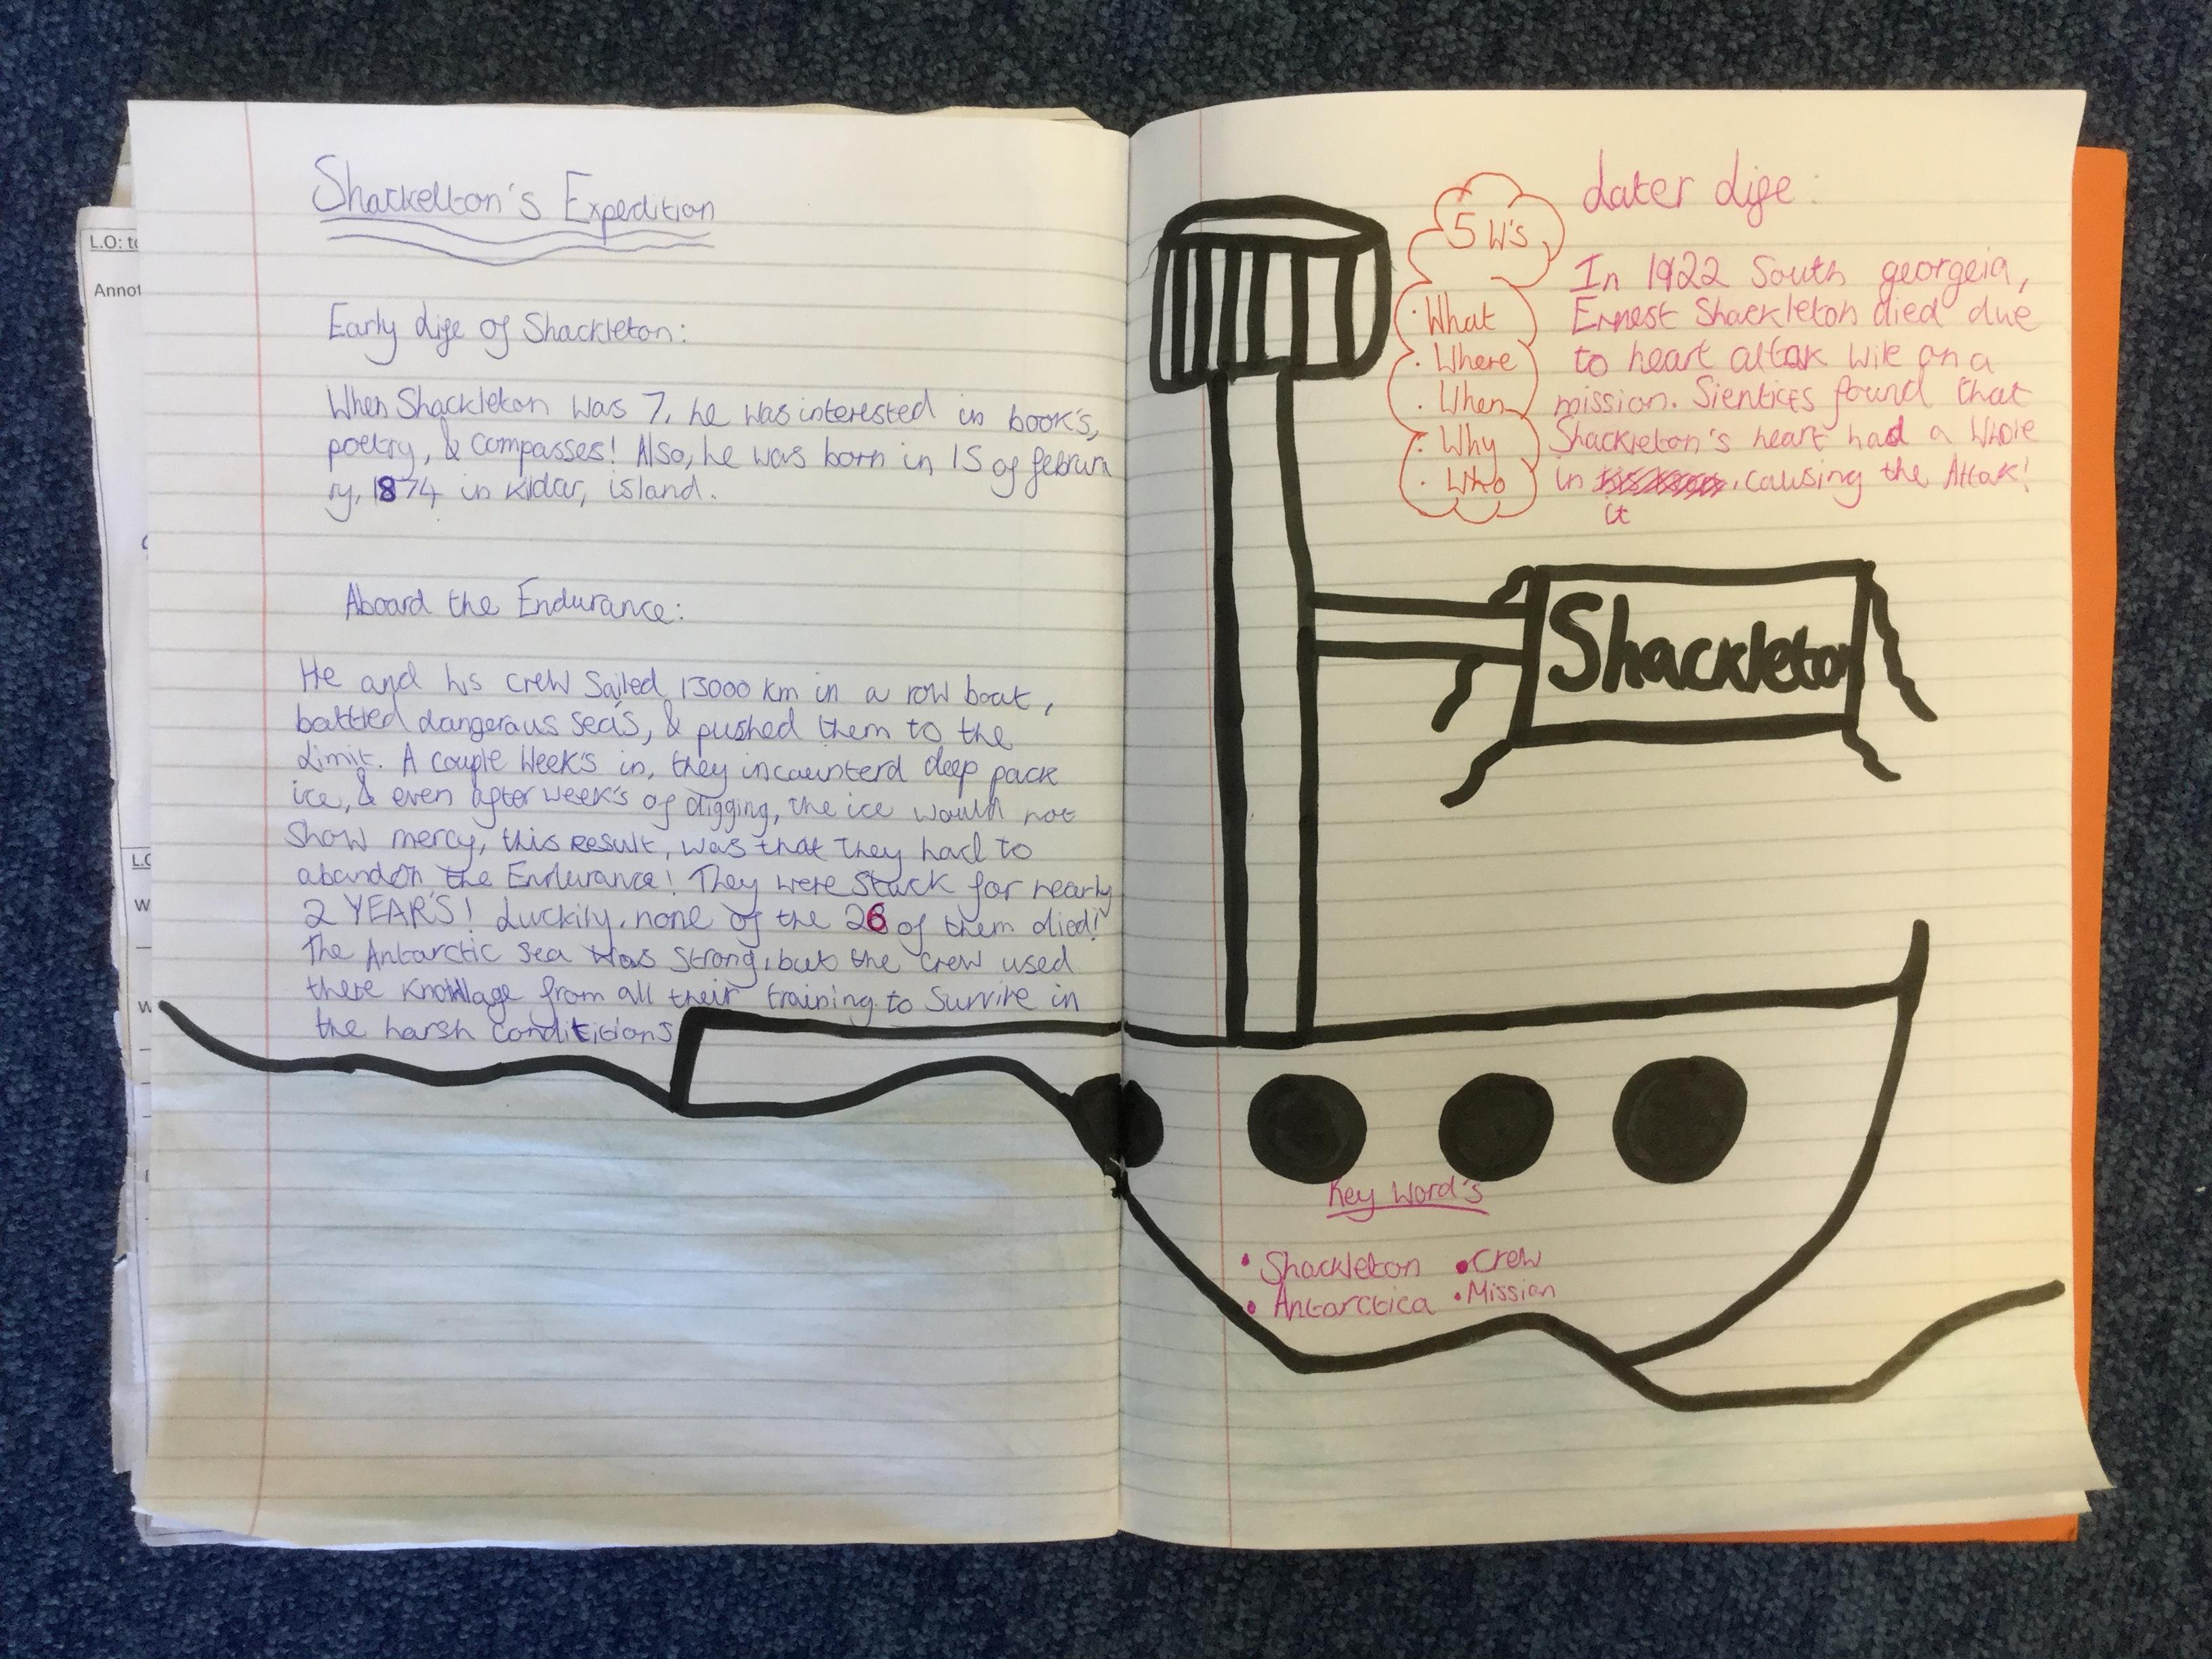 L.O: to
Annot
L.O
W
W
Shackelton's Expedition
Early life of Shackleton:
When Shackleton was 7, he was interested in book's,
poetry, & compasses! Also, he was born in 15 of februa
ry, 1874 in Kildar, island.
Aboard the Endurance:
He and his crew Sailed 13000 km in a row boat,
battled dangerous sea's, & pushed them to the
Limit. A couple Week's in, they incounterd deep pack
ice, & even after week's of digging, the ice would not
Show mercy, this result, was that they had to
abandon the Endurance! They were Stuck for nearly
2 YEAR'S! Luckily, none of the 26 of them died!
The Antarctic Sea was Strong, but the crew used
there Knowlage from all their training to Survive in
the harsh conditions
5 W's
• What
• Where
• When
• Why
• Who
Later Life:
In 1922 South georgeia,
Ernest Shackleton died due
to heart attak wile on a
mission. Sientices found that
Shackleton's heart had a Whole
in it, causing the Attak!
Shackleton
Key Word's
• Shackleton • Crew
• Antarctica • Mission